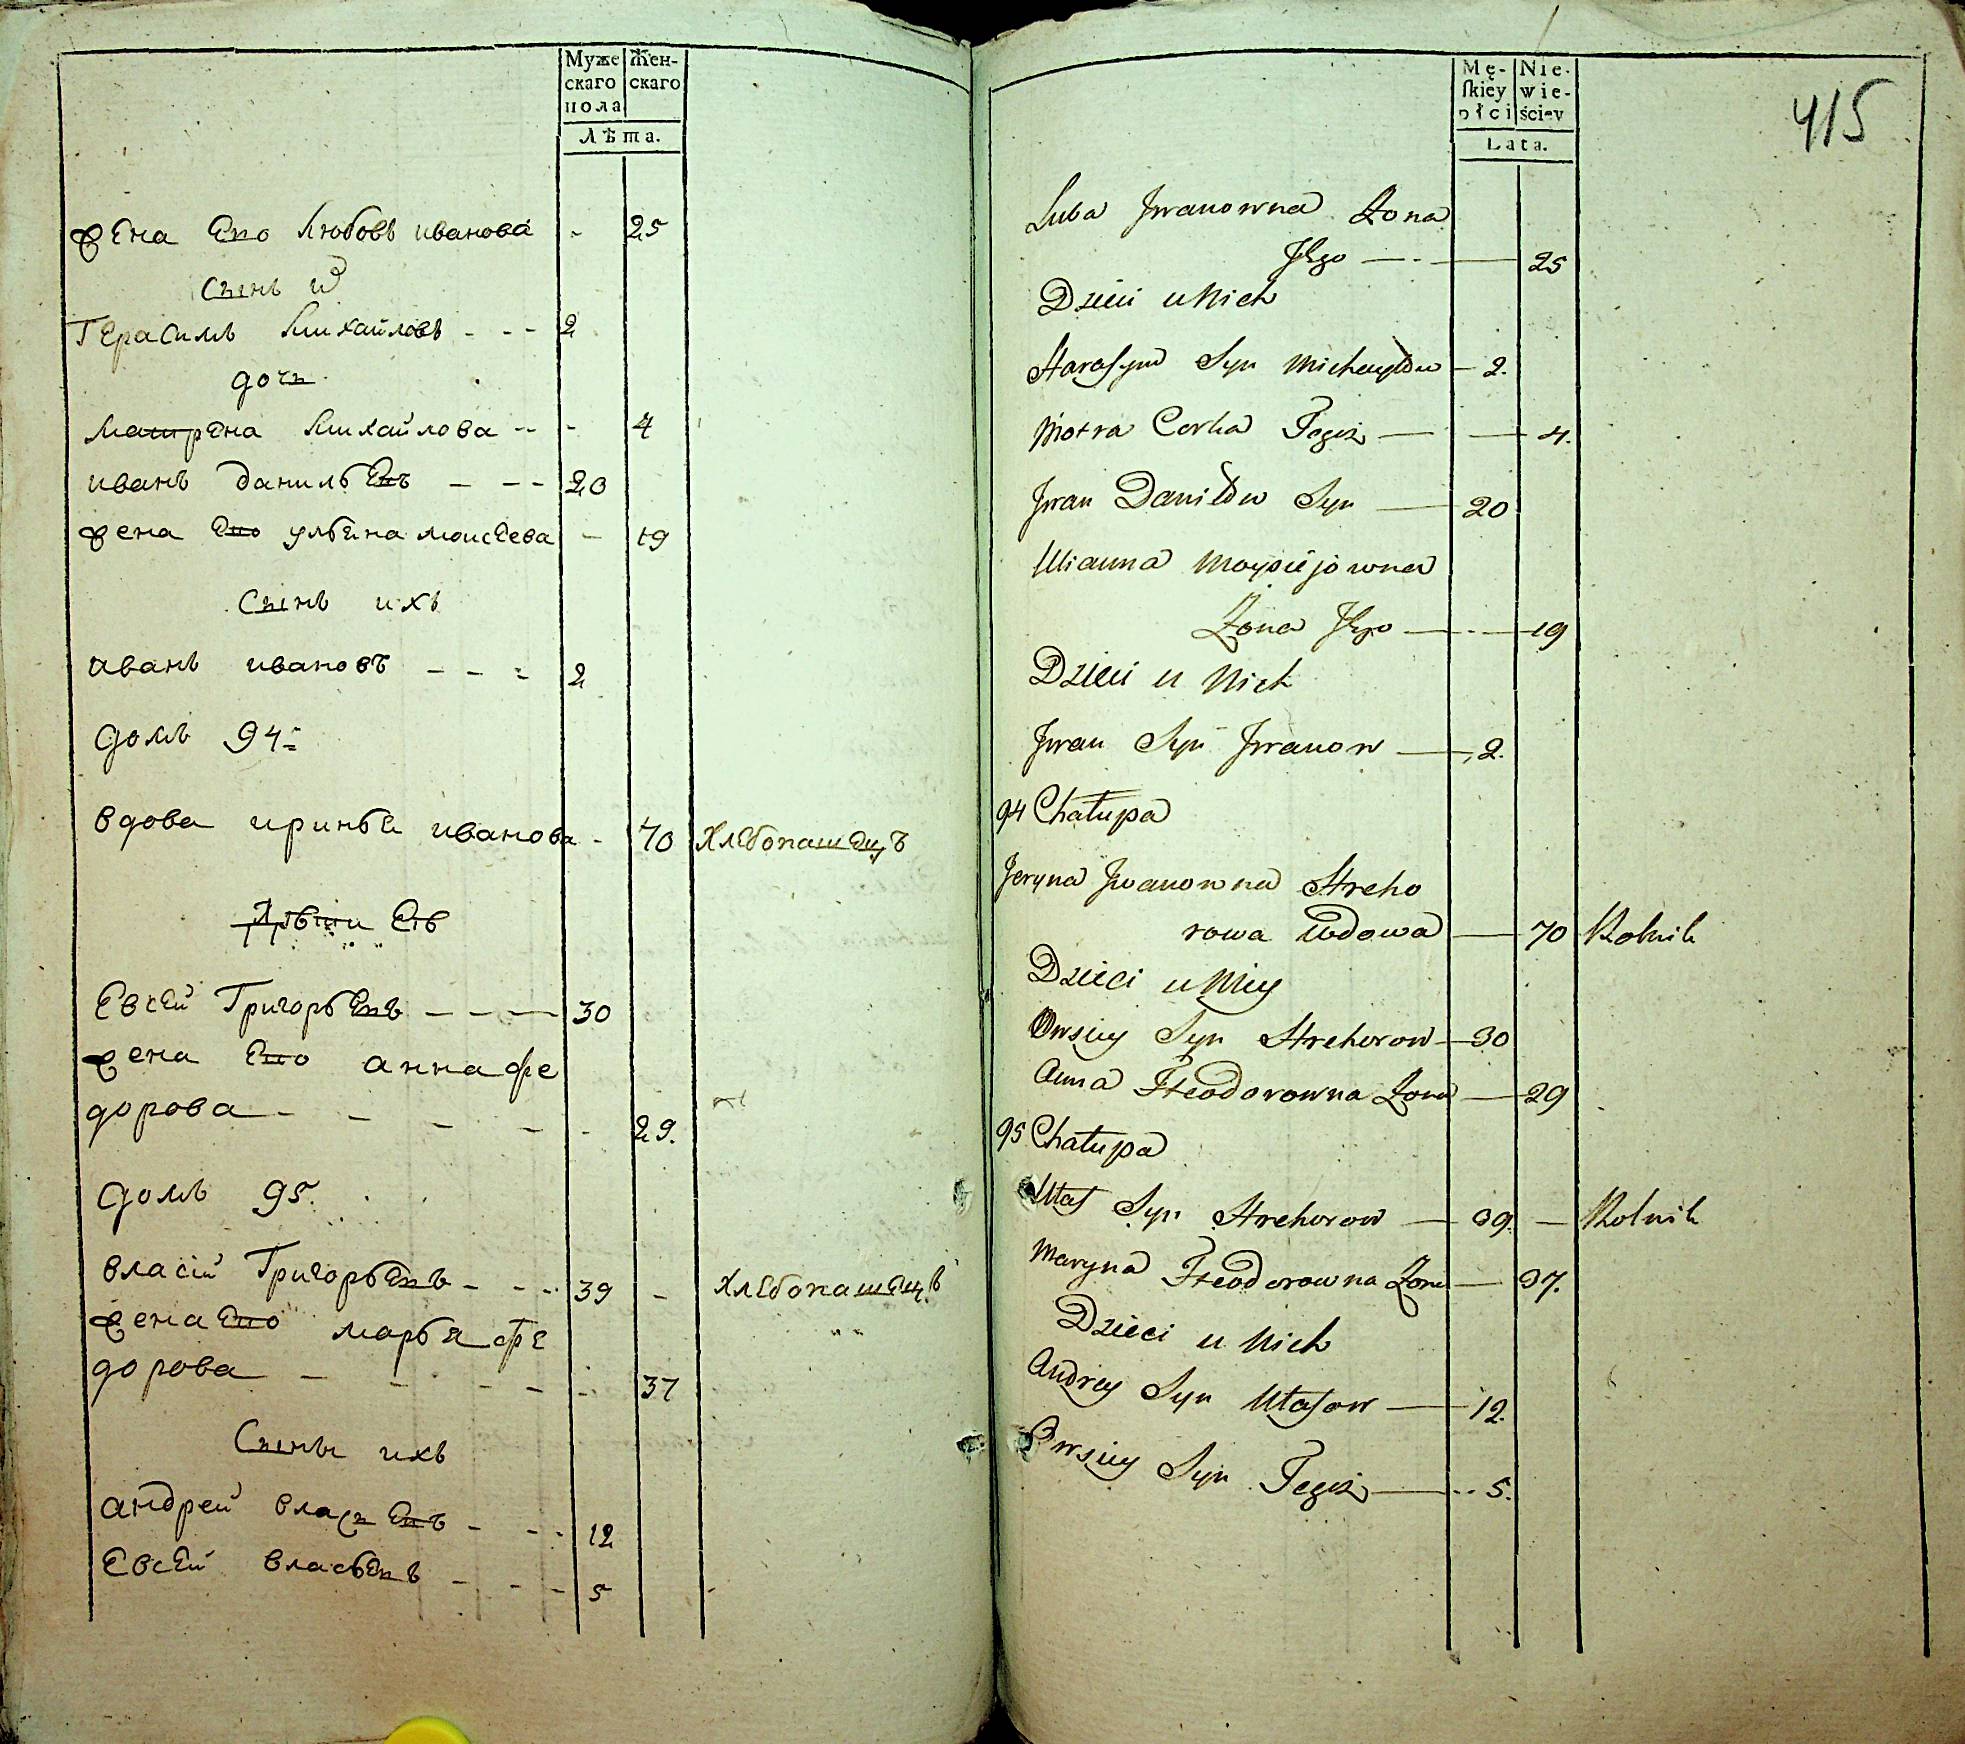 Муже
скаго
пола
Жен-
скаго
Лѣта.
жена Его Любовь иванова - 25
Сынъ и
Герасимъ Михайловъ - - - 2
дочь
матрена Михайлова - - - 4
иванъ данильЕвъ - - - 20
жена Его ульяна моисЕева - 19
Сынъ ихъ
иванъ ивановъ - - - 2
домъ 94
вдова иринья иванова - 70 ХлЕбопашЕцъ
Дѣти Еѣ
ЕвсЕй ГригорьЕвъ - - - 30
жена Его анна фе
дорова - - - - - 29.
домъ 95.
власій ГригорьЕвъ - - - 39 - ХлЕбопашЕцъ
жена Его марья фе
дорова - - - - - 37
Сыны ихъ
андрей власьЕвъ - - - 12
ЕвсЕй власьЕвъ - - - 5
Mę-
skiey
płci
Nie-
wie-
ściey
Lata.
415
Luba Jwanowna Zona
Jego — 25
Dzieci u Nich
Harasym Syn Michayłow — 2.
Motra Corka Tegoż — 4.
Jwan Daniłow Syn — 20
Ulianna Moysiejowna
Zona Jego — 19
Dzieci u Nich
Jwan Syn Jwanow — 2.
94 Chałupa
Jeryna Jwanowna Hreho
rowa Wdowa — 70 Rolnik
Dzieci u Niey
Owsiey Syn Hrehorow — 30
Anna Fteodorowna Zona — 29
95 Chałupa
Ułas Syn Hrehorow — 39 — Rolnik
Maryna Fteodorowna Zona — 37.
Dzieci u Nich
Andrey Syn Ułasow — 12.
Owsiey Syn Tegoż — 5.